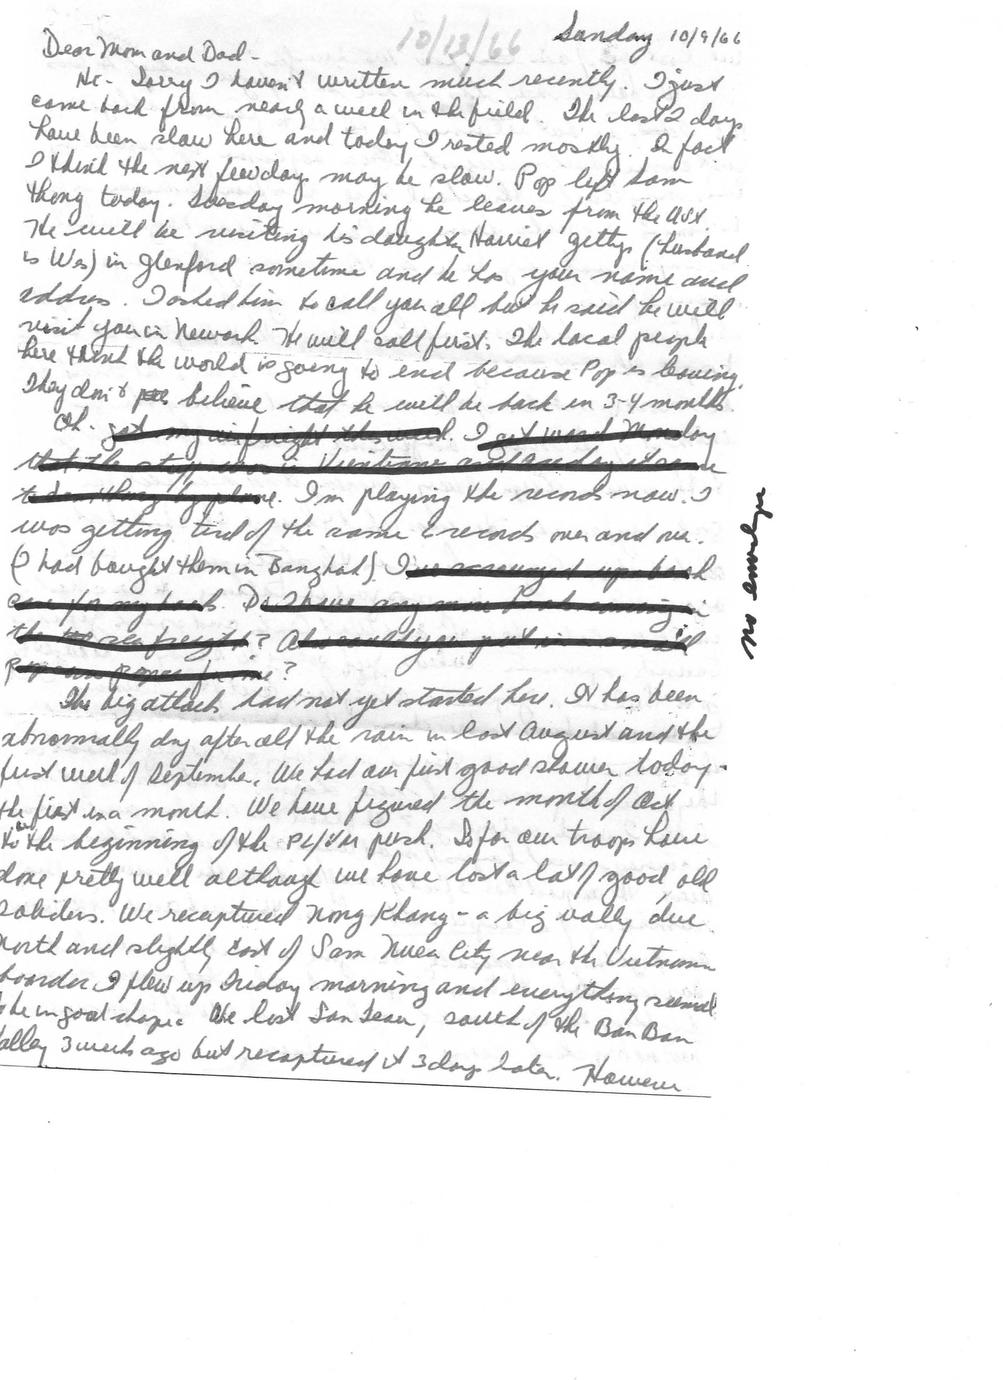 10/13/66
Sunday 10/9/66
Dear Mom and Dad-
Hi- Sorry I haven't written much recently. I just
came back from nearly a week in the field. The last 2 days
have been slow here and today I rested mostly. In fact
I think the next few days may be slow. Pop left Sam
thong today. Tuesday morning he leaves from the
He will be visiting his daughter Harriet Gettys (husband
is Wes) in Glenford sometime and he has your name and
address. I asked him to call you all but he said he will
visit you in Newark. He will call first. The local people
here think the world is going to end because Pop is leaving.
They don't believe that he will be back in 3-4 months.
Oh- got my airfreight this week. I got word Monday
that the stuff was in Vientiane and Sunday it came
to Sam thong by plane. I'm playing the records now. I
was getting tired of the same records over and over.
(I had bought them in Bangkok). I've arranged up a book
case for my books. Do I have any more books coming in
the sea freight? Also could you put in a small
pop corn popper for me?
no envelope
The big attack had not yet started here. It has been
abnormally dry after all the rain in last August and the
first week of September. We had our first good shower today-
the first in a month. We have figured the month of Oct
to be the beginning of the PL/VM push. So far our troops have
done pretty well although we have lost a lot of good, old
soliders. We recaptured Nong Khang - a big vally due
north and slightly east of Sam Nuea City near the Vietnam
boarder. I flew up Friday morning and everything seemed
to be in good shape. We lost San Tean, south of the Ban Ban
Valley 3 weeks ago but recaptured it 3 days later. However